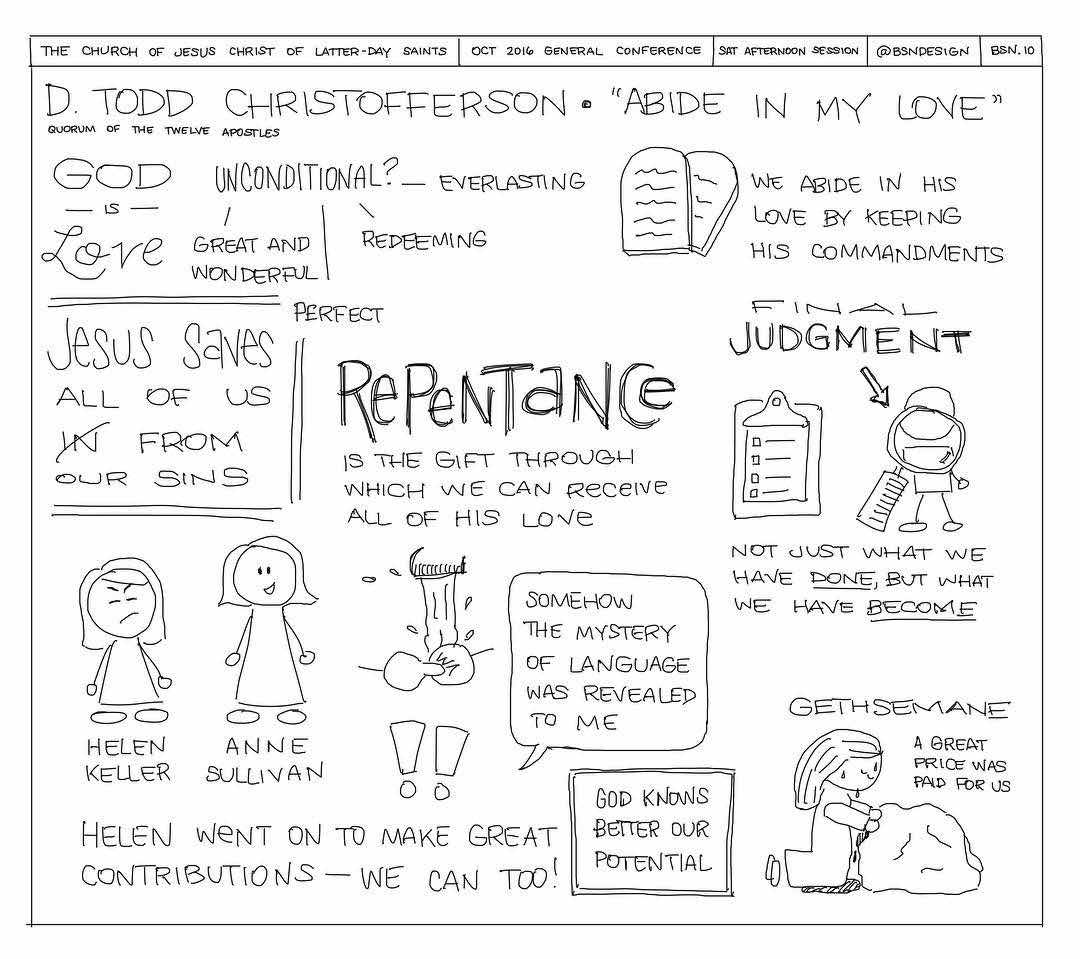 THE CHURCH OF JESUS CHRIST OF LATTER-DAY SAINTS
OCT 2016 GENERAL CONFERENCE
SAT AFTERNOON SESSION
@BSNDESIGN
BSN.10
D. TODD CHRISTOFFERSON • "ABIDE IN MY LOVE"
QUORUM OF THE TWELVE APOSTLES
GOD
— IS —
Love
UNCONDITIONAL? — EVERLASTING
GREAT AND
WONDERFUL
REDEEMING
PERFECT
WE ABIDE IN HIS
LOVE BY KEEPING
HIS COMMANDMENTS
Jesus saves
ALL OF US
IN FROM
OUR SINS
RePeNTaNCe
IS THE GIFT THROUGH
WHICH WE CAN Receive
ALL OF HIS LOVe
FINAL
JUDGMENT
NOT JUST WHAT WE
HAVE DONE, BUT WHAT
WE HAVE BECOME
HELEN
KELLER
ANNE
SULLIVAN
!!
SOMEHOW
THE MYSTERY
OF LANGUAGE
WAS REVEALED
TO ME
HELEN WeNT ON TO MAKE GREAT
CONTRIBUTIONS — WE CAN TOO!
GOD KNOWS
BETTER OUR
POTENTIAL
GETHSEMANE
A GREAT
PRICE WAS
PAID FOR US